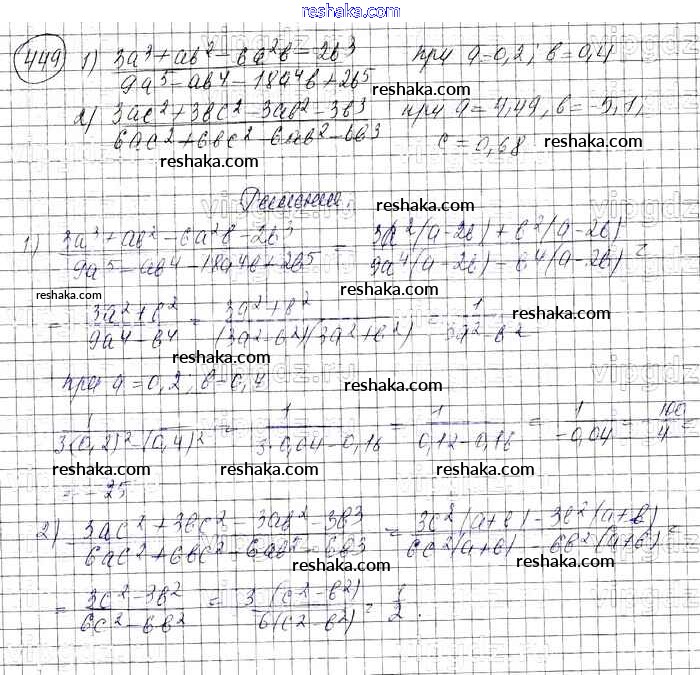 reshaka.com
449 1) (3a³+ab²-6a²b-2b³)/(9a⁵-ab⁴-18a⁴b+2b⁵) при a=0,2; b=0,4
reshaka.com
2) (3ac²+3bc²-3ab²-3b³)/(6ac²+6bc²-6ab²-6b³) при a=4,49, b=-5,1,
c=0,68
reshaka.com reshaka.com
Решение.
reshaka.com
1) (3a³+ab²-6a²b-2b³)/(9a⁵-ab⁴-18a⁴b+2b⁵) = (3a²(a-2b)+b²(a-2b))/(9a⁴(a-2b)-b⁴(a-2b)) =
reshaka.com reshaka.com
= (3a²+b²)/(9a⁴-b⁴) = (3a²+b²)/((3a²-b²)(3a²+b²)) = 1/(3a²-b²)
reshaka.com
при a=0,2, b=0,4
reshaka.com
1/(3(0,2)²-(0,4)²) = 1/(3·0,04-0,16) = 1/(0,12-0,16) = 1/(-0,04) = -100/4 =
reshaka.com reshaka.com reshaka.com reshaka.com
= -25
2) (3ac²+3bc²-3ab²-3b³)/(6ac²+6bc²-6ab²-6b³) = (3c²(a+b)-3b²(a+b))/(6c²(a+b)-6b²(a+b)) =
reshaka.com reshaka.com
= (3c²-3b²)/(6c²-6b²) = (3(c²-b²))/(6(c²-b²)) = 1/2.
reshaka.com reshaka.com